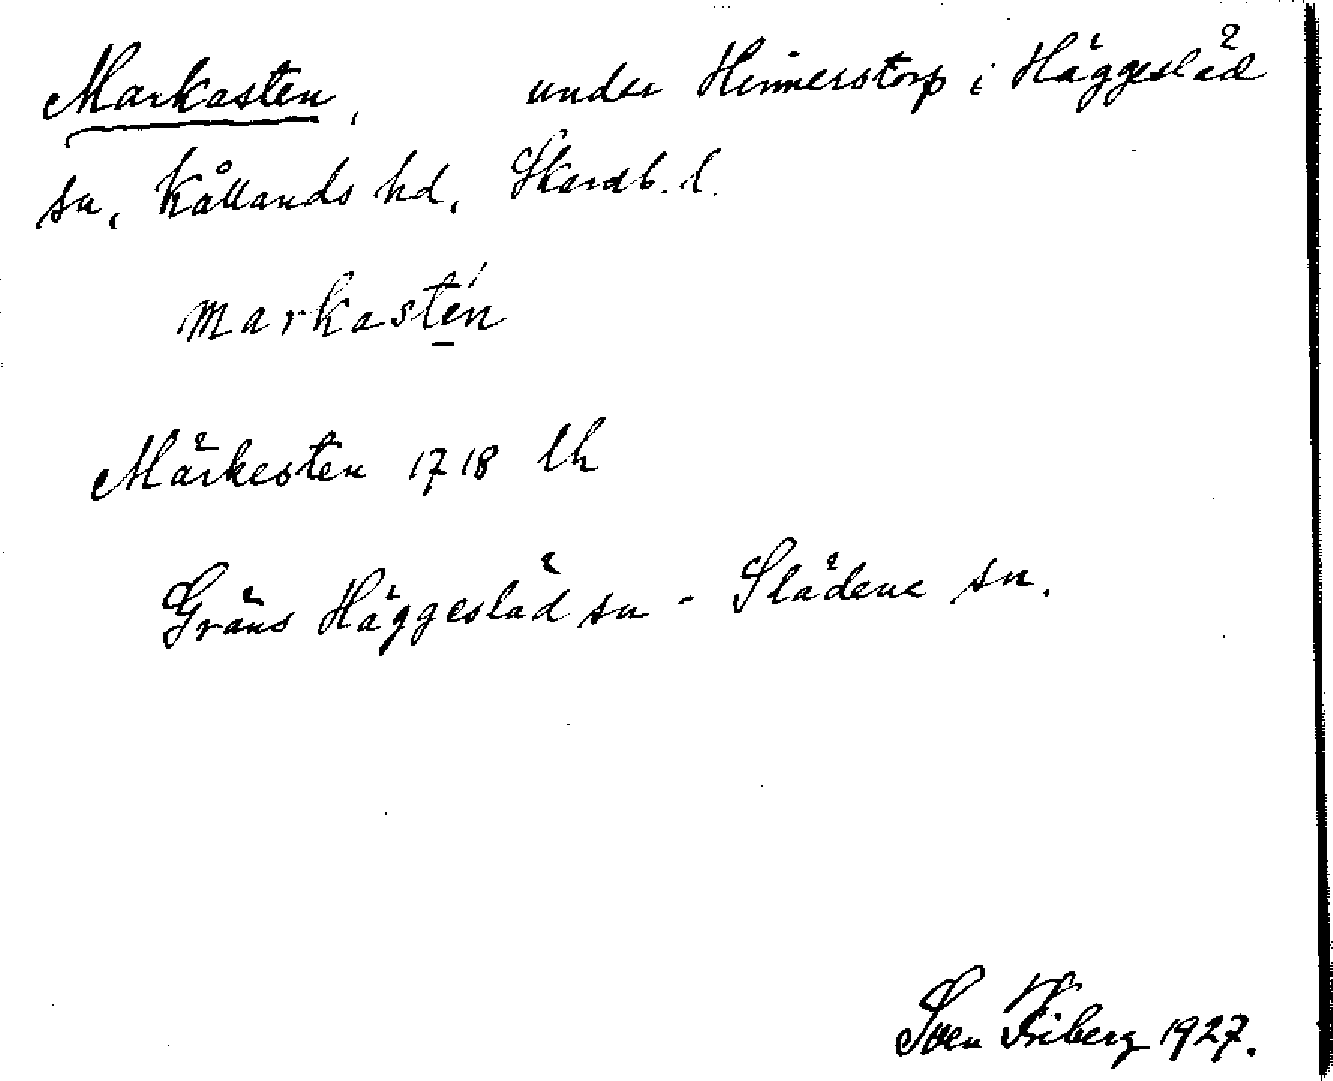 Markasten, under Hinnerstorp i Häggesläd
sn, Kållands hd, Skarab. l.
markasten
Märkesten 1718 lh
Gräns Häggesläd sn - Slädene sn.
Sven Friberg 1927.